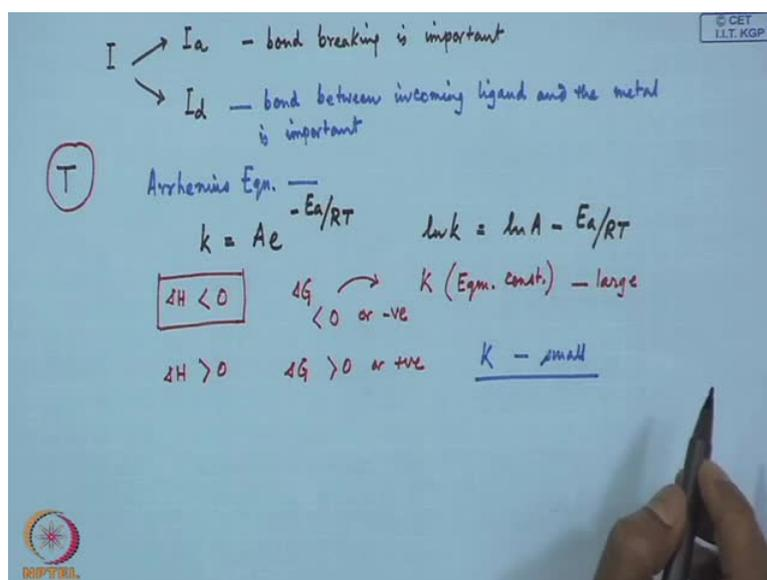 © CET
I.I.T. KGP
I Ia – bond breaking is important
Id – bond between incoming ligand and the metal
is important
T Arrhenius Eqn. —
k = Ae^-Ea/RT lnk = lnA - Ea/RT
ΔH < 0 ΔG < 0 or -ve K (Eqm. const.) – large
ΔH > 0 ΔG > 0 or +ve K – small
NPTEL